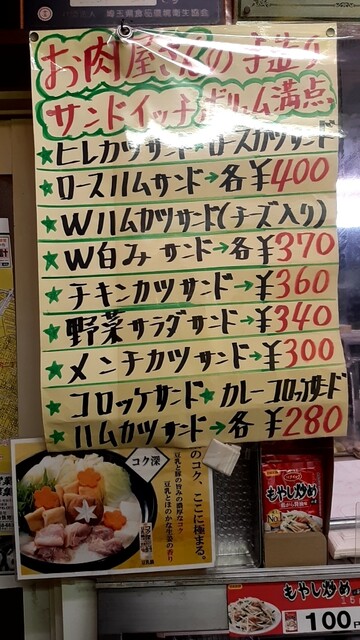 埼玉県食品衛生協会
お肉屋さんの手造り
サンドイッチ ボリューム満点
★ヒレカツサンド★ロースカツサンド
★ロースハムサンド→各¥400
★Wハムカツサンド(チーズ入り)
★W白みサンド→各¥370
★チキンカツサンド→¥360
★野菜サラダサンド→¥340
★メンチカツサンド→¥300
★コロッケサンド★カレーコロッケサンド
★ハムカツサンド→各¥280
コク深
のコク、ここに極まる。
豆乳と豚の旨みの濃厚なコク
豆乳とほのかな生姜の香り
もやし炒め
もやし炒め
100円